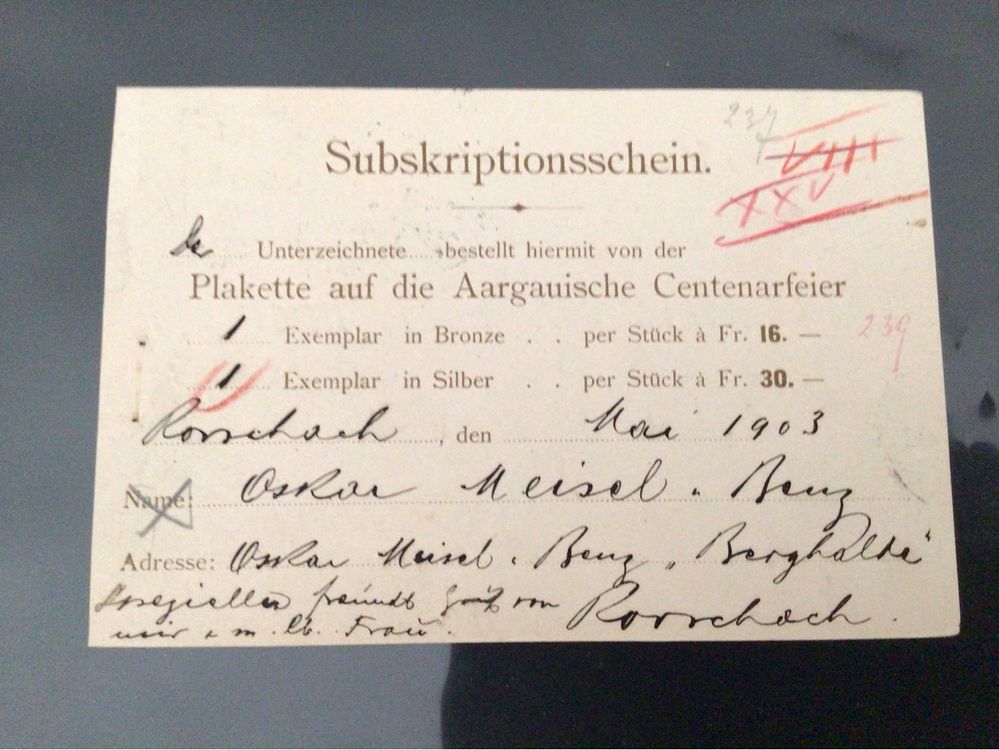 237
VIII
Subskriptionsschein.
XXV
De Unterzeichnete bestellt hiermit von der
Plakette auf die Aargauische Centenarfeier
1 Exemplar in Bronze . . per Stück à Fr. 16. — 239
1 Exemplar in Silber . . per Stück à Fr. 30. —
Rorschach, den Mai 1903
Name: Oskar Meisel - Benz
Adresse: Oskar Meisel - Benz „Berghalde“
Speziellen freundl Gruß von Rorschach.
mir u. m. lb. Frau.